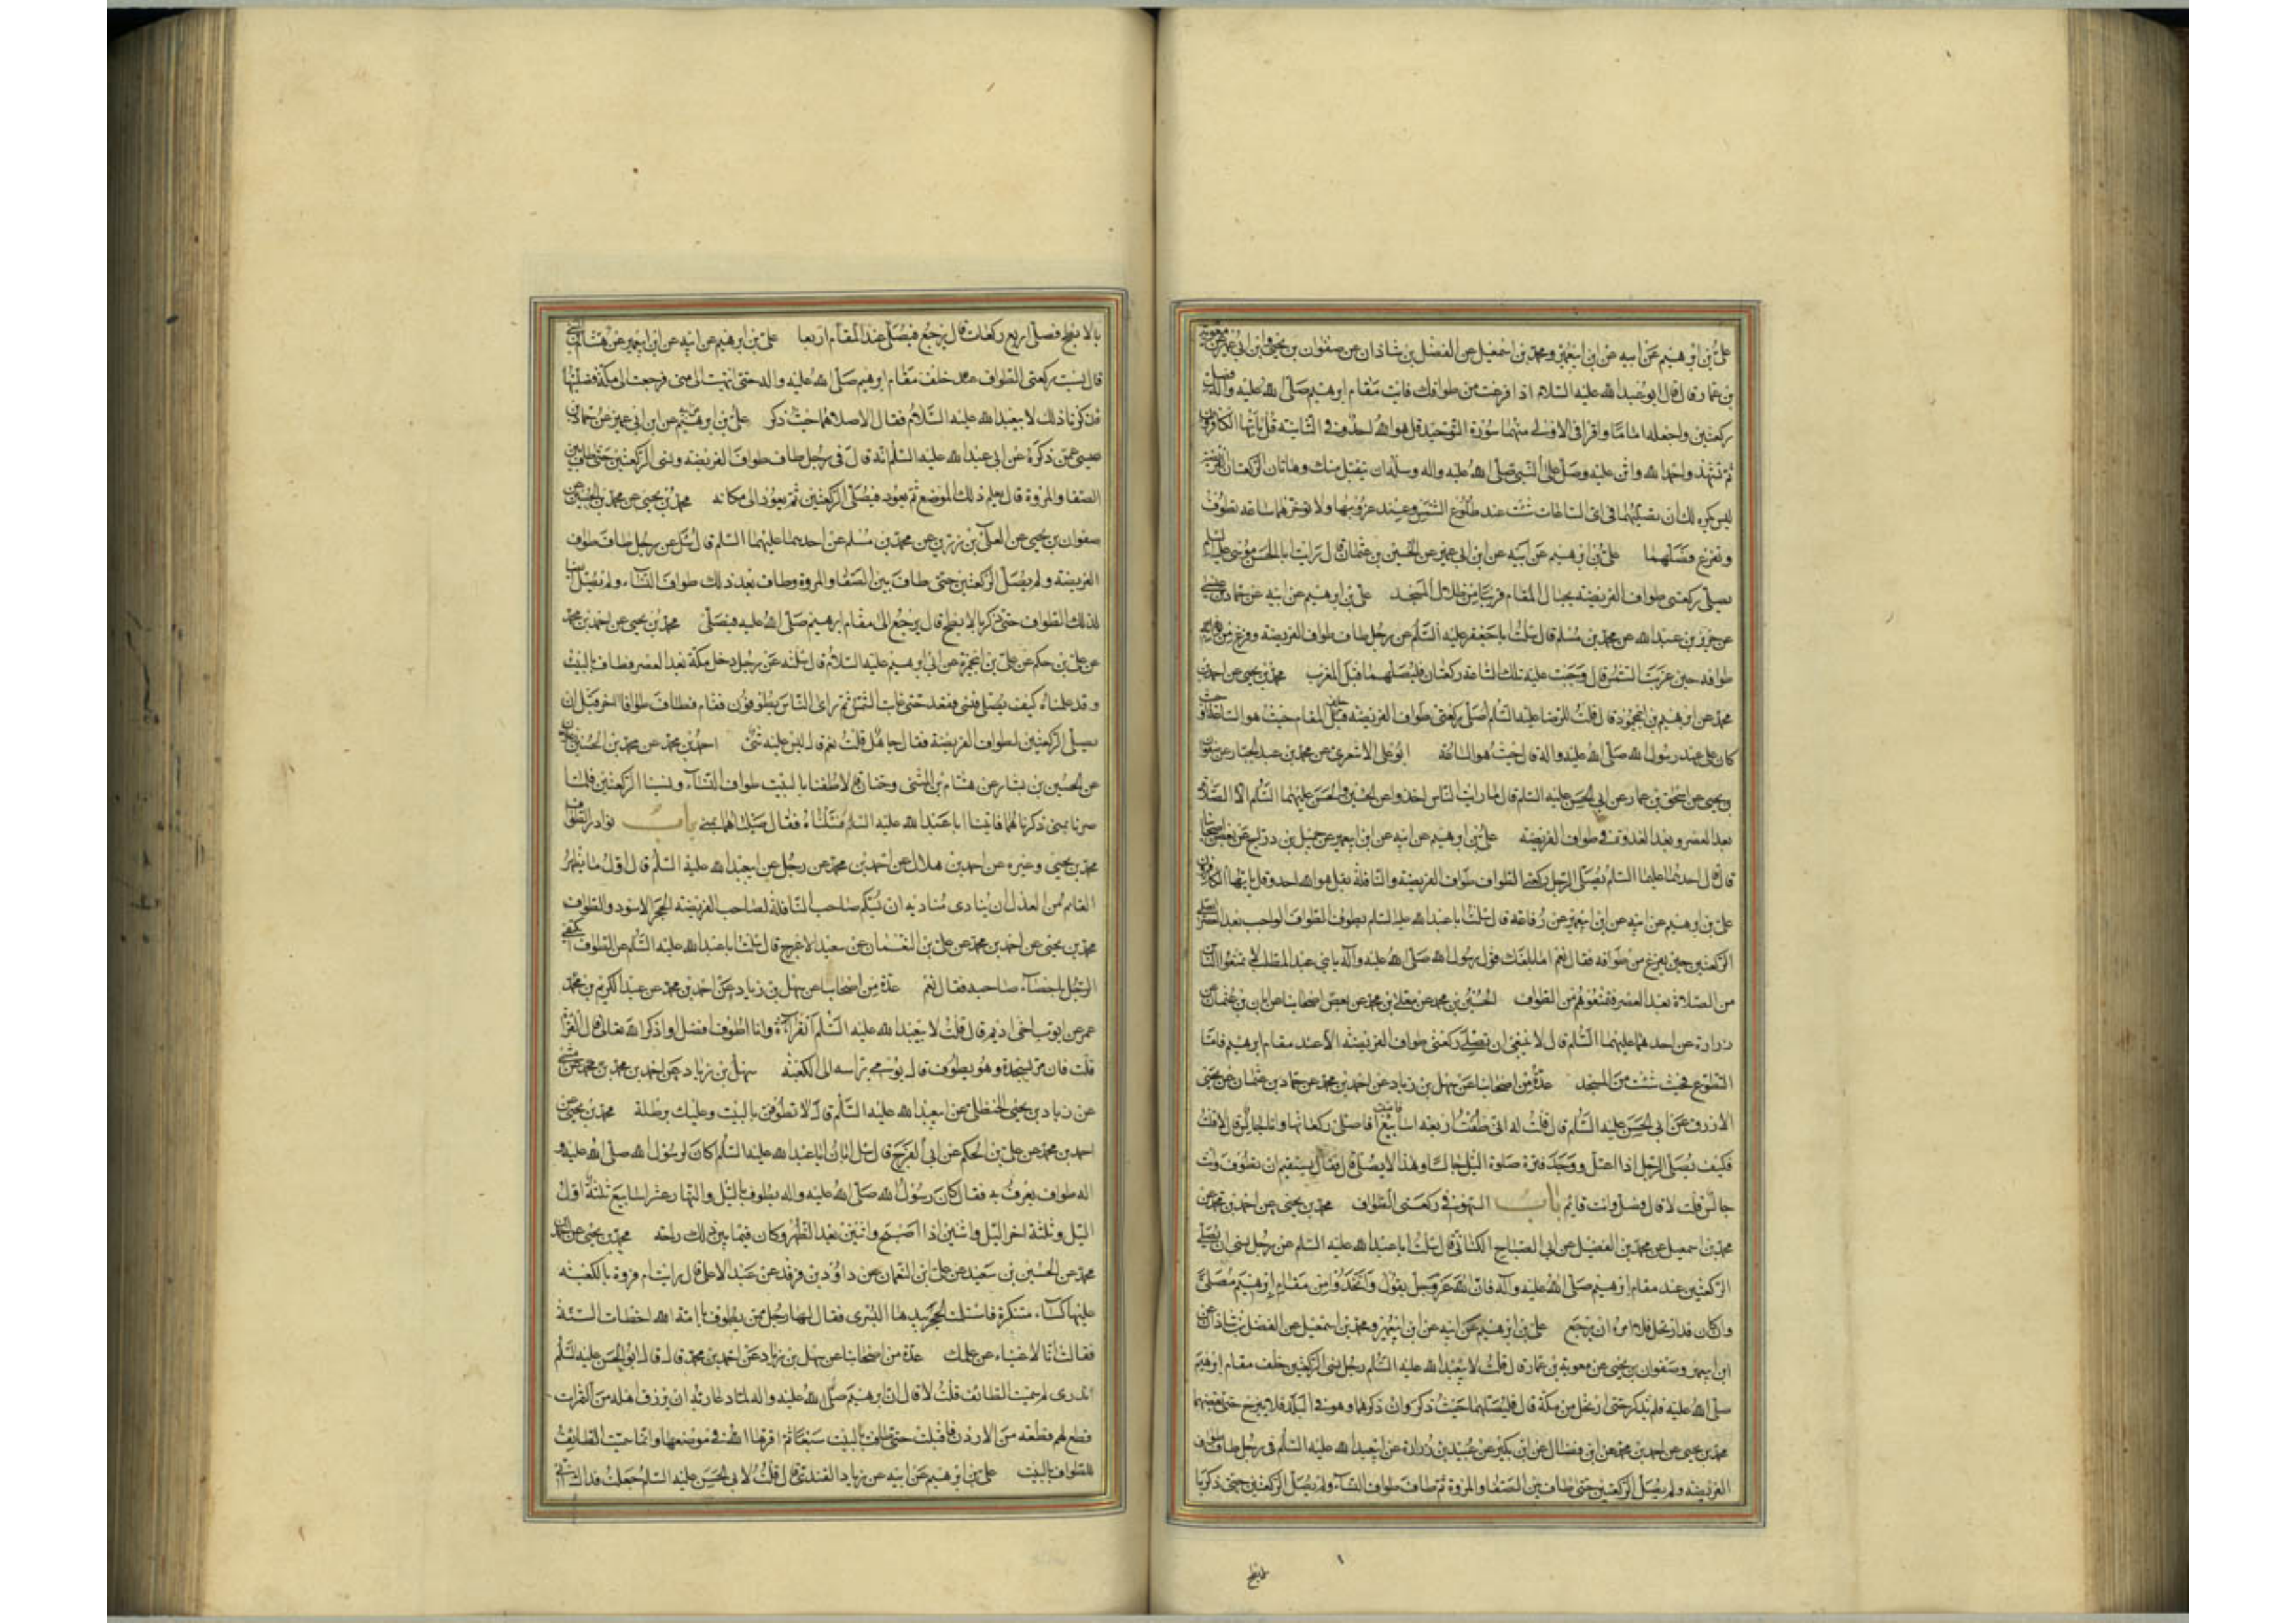 علي بن ابرهيم عن ابيه عن ابن ابيعمير ومحمد بن اسمعيل عن الفضل بن شاذان عن صفوان بن يحيى وابن ابي عمير عن معوية
بن عمار قال قال ابو عبد الله عليه السلام اذا فرغت من طوافك فايت مقام ابرهيم صلى الله عليه واله فصل
ركعتين واجعله اماما واقرا في الاولى منهما سورة التوحيد قل هو الله احد وفي الثانيه قل يا ايها الكافرون
ثم تشهد واحمد الله واثن عليه وصل على النبي صلى الله عليه واله وسله ان يتقبل منك وهاتان الركعتان الفريضه
ليس يكره لك ان تصليهما في اي الساعات شئت عند طلوع الشمس وعند غروبها ولا تؤخرهما ساعة تطوف
وتفرغ فصلهما علي بن ابرهيم عن ابيه عن ابن ابي عمير عن الحسين بن عثمان قال رايت ابا الحسن موسى عليه السلم
يصلي ركعتي طواف الفريضه بحيال المقام قريبا من ظلال المسجد علي بن ابرهيم عن ابيه عن حماد بن عيسى
عن حريز بن عبد الله عن محمد بن مسلم قال سئلت ابا جعفر عليه السلم عن رجل طاف طواف الفريضة وفرغ من
طوافه حين غربت الشمس قال وجبت عليه تلك الساعة ركعتان فليصلهما قبل المغرب محمد بن يحيى عن احمد بن
محمد عن ابرهيم بن ابي محمود قال قلت للرضا عليه السلم اصلي ركعتي طواف الفريضه خلف المقام حيث هو الساعة او حيث
كان على عهد رسول الله صلى الله عليه واله قال حيث هو الساعة ابو علي الاشعري عن محمد بن عبد الجبار عن صفوان
ويحيى عن اسحق بن عمار عن ابي الحسن عليه السلم قال ما رايت الناس اخذوا عن الحسن والحسين عليهما السلم الا الصلاة
بعد العصر وبعد الغدوة في طواف الفريضه علي بن ابرهيم عن ابيه عن ابن ابيعمير عن جميل بن دراج عن بعض اصحابنا
قال قال احدهما عليهما السلم يصلي الرجل ركعتي الطواف طواف الفريضة والنافلة بقل هو الله احد وقل يا ايها الكافرون
علي بن ابرهيم عن ابيه عن ابن ابيعمير عن رفاعة قال سئلت ابا عبد الله عليه السلم يطوف الطواف الواجب بعد العصر ايصلي
الركعتين حين يفرغ من طوافه فقال نعم اما بلغك قول رسول الله صلى الله عليه واله يا بني عبد المطلب لا تمنعوا الناس
من الصلاة بعد العصر فتمنعوهم من الطواف الحسين بن محمد عن معلى بن محمد عن بعض اصحابنا عن ابان بن عثمان عن
زرارة عن احدهما عليهما السلم قال لا ينبغي ان تصلي ركعتي طواف الفريضة الا عند مقام ابرهيم فاما
التطوع فحيث شئت من المسجد عدة من اصحابنا عن سهل بن زياد عن احمد بن محمد عن حماد بن عثمان عن يحيى
الازرق عن ابي الحسن عليه السلم قال قلت له اني طفت اربعة اسابيع فاعييت افاصلي ركعاتها وانا جالس قال لا قلت
فكيف يصلي الرجل اذا اعتل ووجد فترة صلوة الليل جالسا وهذا لا يصلي قال فقال يستقيم ان تطوف وانت
جالس قلت لا قال فصل وانت قائم باب السهو في ركعتي الطواف محمد بن يحيى عن احمد بن محمد عن
محمد بن اسمعيل عن محمد بن الفضيل عن ابي الصباح الكناني قال سئلت ابا عبد الله عليه السلم عن رجل نسي ان يصلي
الركعتين عند مقام ابرهيم صلى الله عليه واله فان الله عز وجل يقول واتخذوا من مقام ابرهيم مصلى
وان كان قد ارتحل فلا امره ان يرجع علي بن ابرهيم عن ابيه عن ابن ابيعمير ومحمد بن اسمعيل عن الفضل بن شاذان عن
ابن ابيعمير وصفوان بن يحيى عن معوية بن عمار قال قلت لابيعبد الله عليه السلم رجل نسي الركعتين خلف مقام ابرهيم
صلى الله عليه فلم يذكر حتى ارتحل من مكة قال فليصلهما حيث ذكر وان ذكرهما وهو في البلد فلا يبرح حتى يقضيهما
محمد بن يحيى عن احمد بن محمد عن ابن فضال عن ابن بكير عن عبيد بن زرارة عن ابيعبد الله عليه السلم في رجل طاف طواف
الفريضه ولم يصل الركعتين حتى طاف بين الصفا والمروة ثم طاف طواف النسآء ولم يصل الركعتين حتى ذكر يا
بالابطح فصلى اربع ركعات قال يرجع فيصلي عند المقام اربعا علي بن ابرهيم عن ابيه عن ابن ابيعمير عن هشام بن المثنى
قال نسيت ركعتي الطواف خلف مقام ابرهيم صلى الله عليه واله حتى انتهيت الى منى فرجعت الى مكة فصليتهما
فذكرنا ذلك لابيعبد الله عليه السلام فقال الا صلاهما حيث ذكر علي بن ابرهيم عن ابيه عن ابن ابي عمير عن حماد بن
عيسى عمن ذكره عن ابي عبد الله عليه السلم انه قال في رجل طاف طواف الفريضه ونسي الركعتين حتى طاف بين
الصفا والمروة قال يعلم ذلك الموضع ثم يعود فيصلي الركعتين ثم يعود الى مكانه محمد بن يحيى عن محمد بن الحسين عن
صفوان بن يحيى عن العلآ بن رزين عن محمد بن مسلم عن احدهما عليهما السلم قال سئل عن رجل طاف طواف
الفريضة ولم يصل الركعتين حتى طاف بين الصفا والمروة وطاف بعد ذلك طواف النسآء ولم يصل ايضا
لذلك الطواف حتى ذكر بالابطح قال يرجع الى مقام ابرهيم صلى الله عليه فيصلي محمد بن يحيى عن احمد بن محمد
عن علي بن حكم عن علي بن ابيحمزة عن ابي ابرهيم عليه السلام قال سئلته عن رجل دخل مكة بعد العصر فطاف بالبيت
وقد علمناه كيف يصلي فنسي فقعد حتى غابت الشمس ثم راى الناس يطوفون فقام فطاف طوافا اخر قبل ان
يصلي الركعتين لطواف الفريضة فقال جاهل قلت نعم قال ليس عليه شئ احمد بن محمد عن محمد بن الحسن بن علان
عن الحسين بن بشار عن هشام بن المثنى وحنان قالا طفنا بالبيت طواف النسآء ونسينا الركعتين فلما
صرنا بمنى ذكرناهما فاتينا ابا عبد الله عليه السلم فسئلناه فقال صلياهما بمنى باب نوادر الطواف
محمد بن يحيى وغيره عن احمد بن هلال عن احمد بن محمد عن رجل عن ابيعبد الله عليه السلم قال اول ما يظهر
القائم من العدل ان ينادي مناديه ان يسلم صاحب النافلة لصاحب الفريضه الحجر الاسود والطواف
محمد بن يحيى عن احمد بن محمد عن علي بن النعمان عن سعيد الاعرج قال سئلت ابا عبد الله عليه السلم عن الطواف ايكتفي
الرجل باحصآء صاحبه فقال نعم عدة من اصحابنا عن سهل بن زياد عن احمد بن محمد عن عبد الكريم بن
عمر عن ايوب اخي اديم قال قلت لابيعبد الله عليه السلم القرآءة وانا اطوف افضل او اذكر الله تعالى قال القرآءة
قلت فان مر بسجدة وهو يطوف قال يومي براسه الى الكعبة سهل بن زياد عن احمد بن محمد عن مثنى
عن زياد بن يحيى الحنظلي عن ابيعبد الله عليه السلم قال لا تطوفن بالبيت وعليك برطلة محمد بن يحيى عن
احمد بن محمد عن علي بن الحكم عن ابي الفرج قال سئل ابان ابا عبد الله عليه السلم اكان لرسول الله صلى الله عليه و
اله طواف يعرف به فقال كان رسول الله صلى الله عليه واله يطوف بالليل والنهار عشر اسابيع ثلثة اول
الليل وثلثة اخر الليل واثنين اذا اصبح واثنين بعد الظهر وكان فيما بين ذلك راحته محمد بن يحيى عن احمد بن
محمد عن الحسين بن سعيد عن علي بن النعمان عن داوود بن فرقد عن عبد الاعلى قال رايت ام فروة بالكعبه
عليها كسآء متنكرة فاستلمت الحجر بيدها اليسرى فقال لها رجل ممن يطوف يا امة الله اخطات السنة
فقالت انا لاغنياء عن علمك عدة من اصحابنا عن سهل بن زياد عن احمد بن محمد قال قال ابو الحسن عليه السلم
اتدري لم سميت الطائف قلت لا قال ان ابرهيم صلى الله عليه واله لما دعا ربه ان يرزق اهله من الثمرات
قطع لهم قطعة من الاردن فاقبلت حتى طافت بالبيت سبعا ثم اقرها الله في موضعها وانما سميت الطائف
للطواف بالبيت علي بن ابرهيم عن ابيه عن زياد القندي قال قلت لابي الحسن عليه السلم جعلت فداك اني
بالابطح